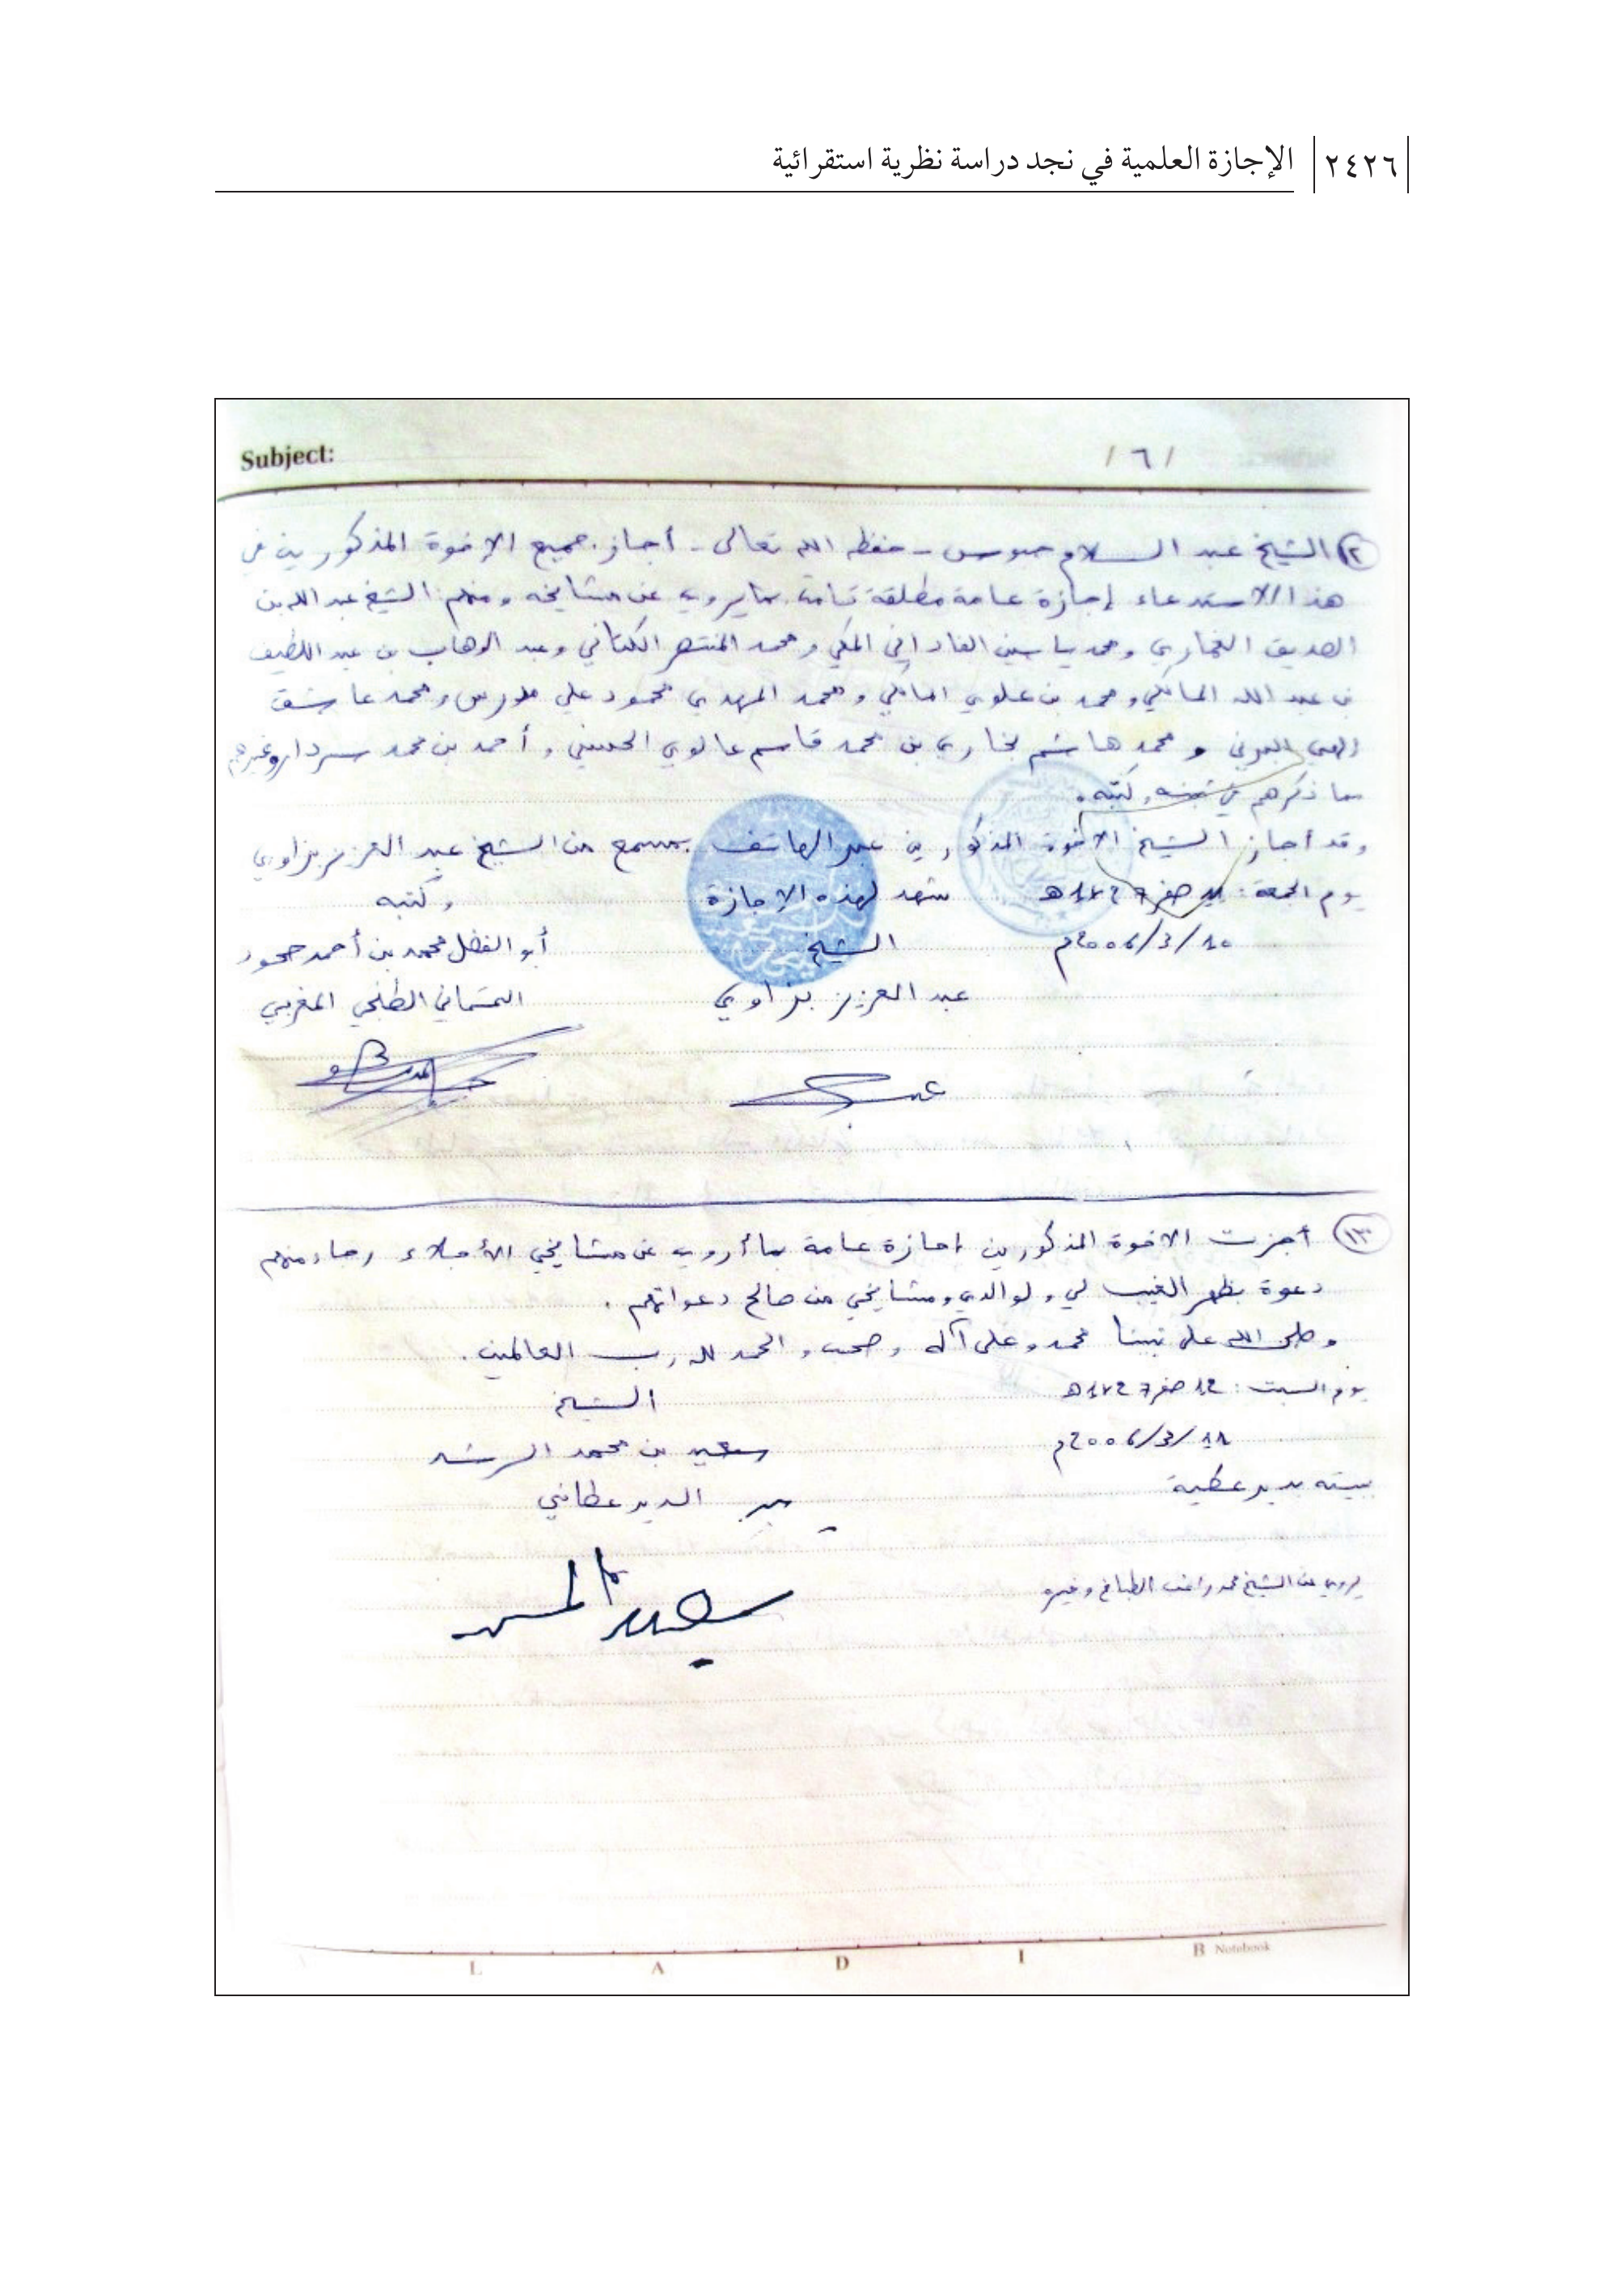 ٢٤٢٦ الإجازة العلمية في نجد دراسة نظرية استقرائية
Subject:
/ ٦ /
الشيخ عبد السلام حبوس - حفظه الله تعالى - أجاز جميع الإخوة المذكورين في
هذا الاستدعاء إجازة عامة مطلقة تامة بما يروي عن مشايخه ومنهم الشيخ عبد الله بن
الصديق الغماري ومحمد ياسين الفاداني المكي ومحمد المنتصر الكتاني وعبد الوهاب بن عبد اللطيف
بن عبد الله المالكي ومحمد بن علوي المالكي ومحمد المهدي محمود علي ومحمد عاشق
إلهي البرني و محمد هاشم بخاري بن محمد قاسم الحسيني وأحمد بن محمد سردار وغيرهم
مما ذكرهم في ثبته وكتبه.
وقد أجاز الشيخ الإخوة المذكورين عبر الهاتف بمسمع من الشيخ عبد العزيز بزاوي
يوم الجمعة: صفر 1427هـ شهد لهذه الإجازة وكتبه
10/3/2006م الشيخ أبو الفضل محمد بن أحمد جحود
عبد العزيز بزاوي التمسماني الطنجي المغربي
١٣ أجزت الإخوة المذكورين إجازة عامة بما أروي عن مشايخي الأجلاء رجاء منهم
دعوة بظهر الغيب لي ولوالدي ومشايخي من صالح دعواتهم.
وصلى الله على نبينا محمد وعلى آله وصحبه والحمد لله رب العالمين.
يوم السبت: 12 صفر 1427هـ الشيخ
11/3/2006م سعيد بن محمد
ببيته بدير عطية الدير عطاني
يروي عن الشيخ محمد راغب الطباخ وغيره
L A D I B Notebook